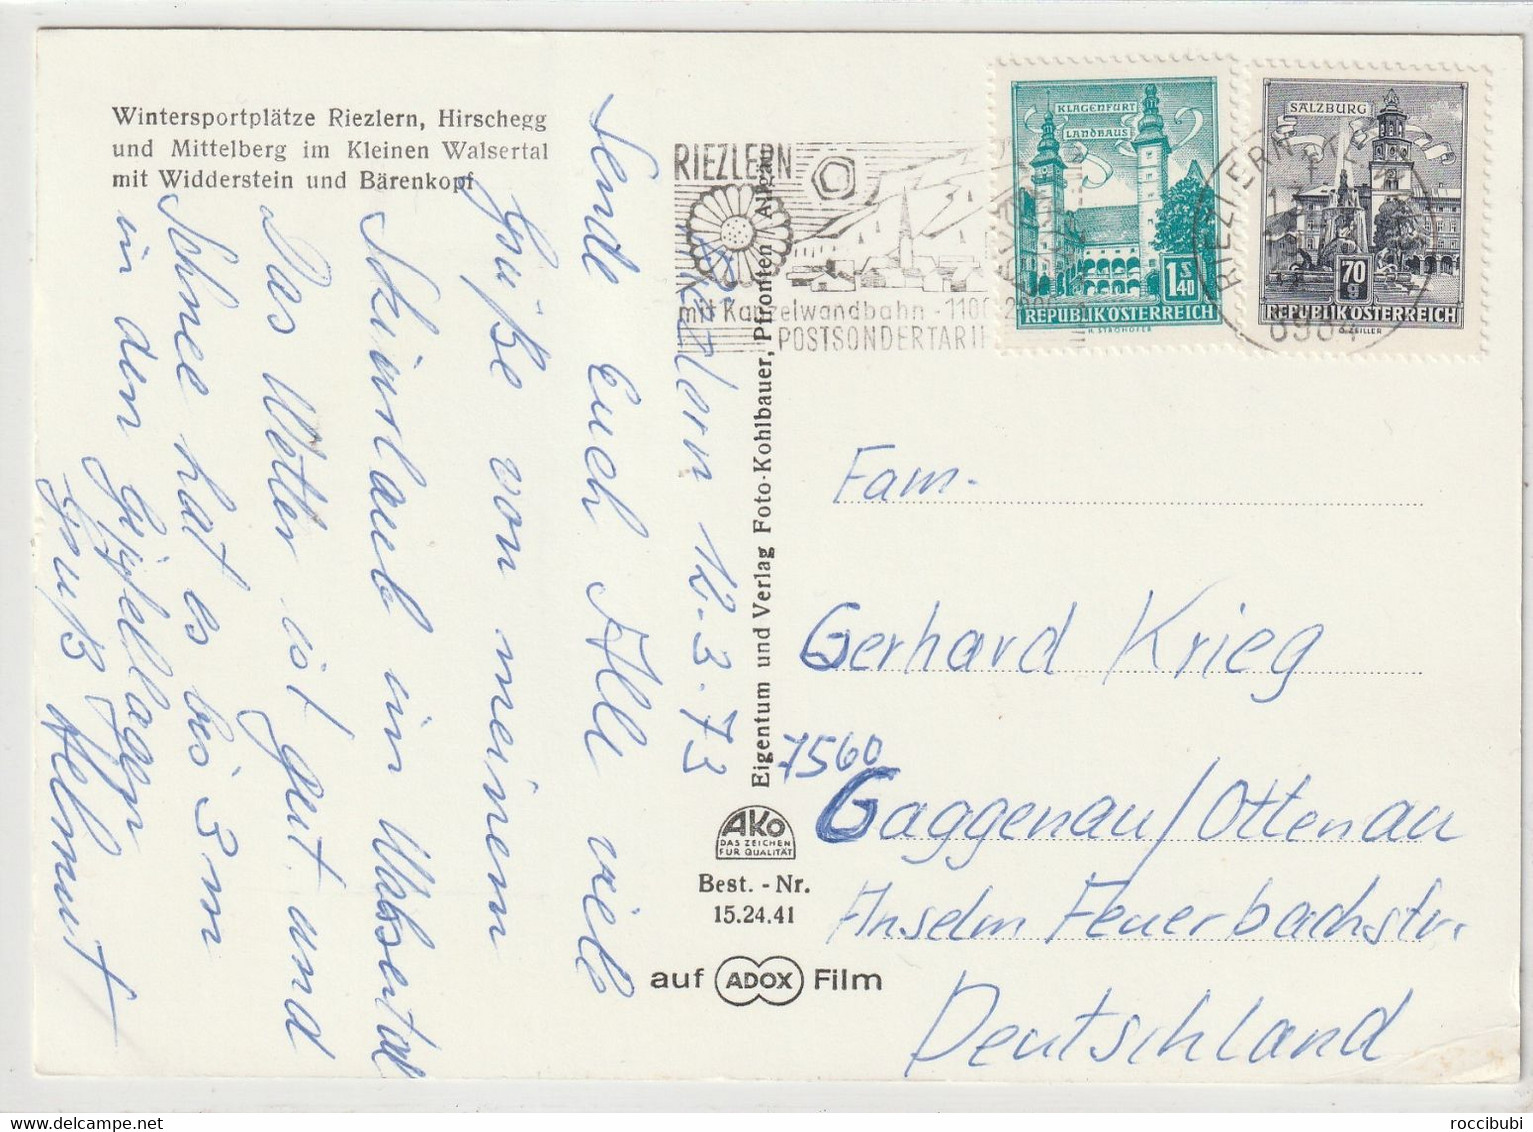 Wintersportplätze Riezlern, Hirschegg
und Mittelberg im Kleinen Walsertal
mit Widderstein und Bärenkopf
Riezlern 12.3.73
Sende Euch Alle viele
Grüße von meinem
Skiurlaub im Walsertal
Das Wetter ist gut und
Schnee hat es bis 3 m
in den Gipfellagen
Gruß Helmut
Eigentum und Verlag Foto-Kohlbauer, Pfronten Allgäu
AKO
DAS ZEICHEN
FÜR QUALITÄT
Best. - Nr.
15.24.41
auf ADOX Film
RIEZLERN
mit Kanzelwandbahn - 1100-2000
POSTSONDERTARIF
KLAGENFURT
LANDHAUS
1 S 40
REPUBLIK ÖSTERREICH
H. STROHOFER
SALZBURG
70 g
REPUBLIK ÖSTERREICH
G. ZEILLER
RIEZLERN
Fam.
Gerhard Krieg
7560
Gaggenau/Ottenau
Anselm Feuerbachstr.
Deutschland
delcampe.net
roccibubi